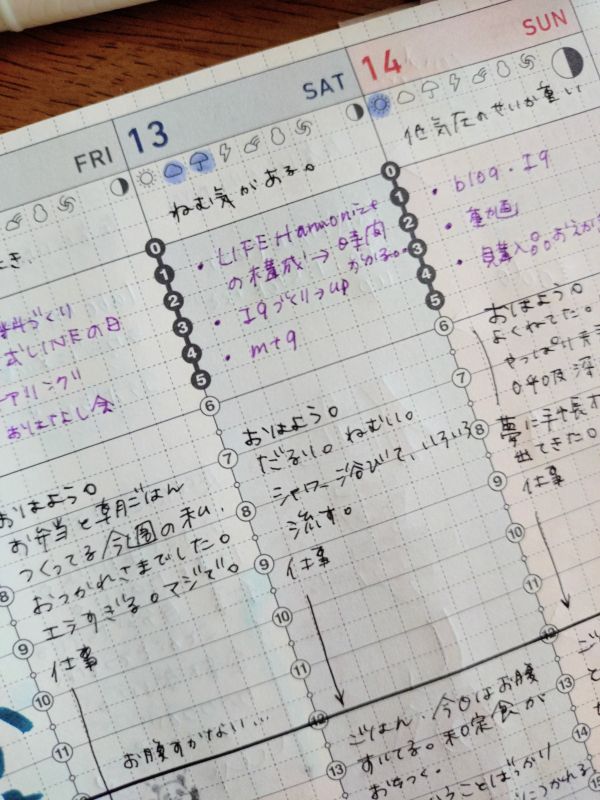 FRI
とき.
料づくり
LINEの日
アリング
おはなし会
おはよう。
お弁当と朝ごはん
つくってる今週の私、
おつかれさまでした。
エラすぎる。マジで。
仕事
8
9
10
11
13 SAT
ねむ気がある。
0
1
2
3
4
5
6
7
8
9
10
11
12
13
・LIFE Harmonize
の構成→時間
がかかる…
・IGづくり→up
・mtg
おはよう。
だるい。ねむい。
シャワー浴びて、いろいろ
流す。
仕事
お腹すかない…
ごはん。今日はお腹
すいてる。和定食が
おちつく。
ことばかり
14 SUN
低気圧のせいか重い
0
1
2
3
4
5
6
7
8
9
10
11
12
13
14
15
・blog・IG
・動画
・購入品
おはよう。
よくねてた。
やっぱり
夢に
出てきた。
仕事